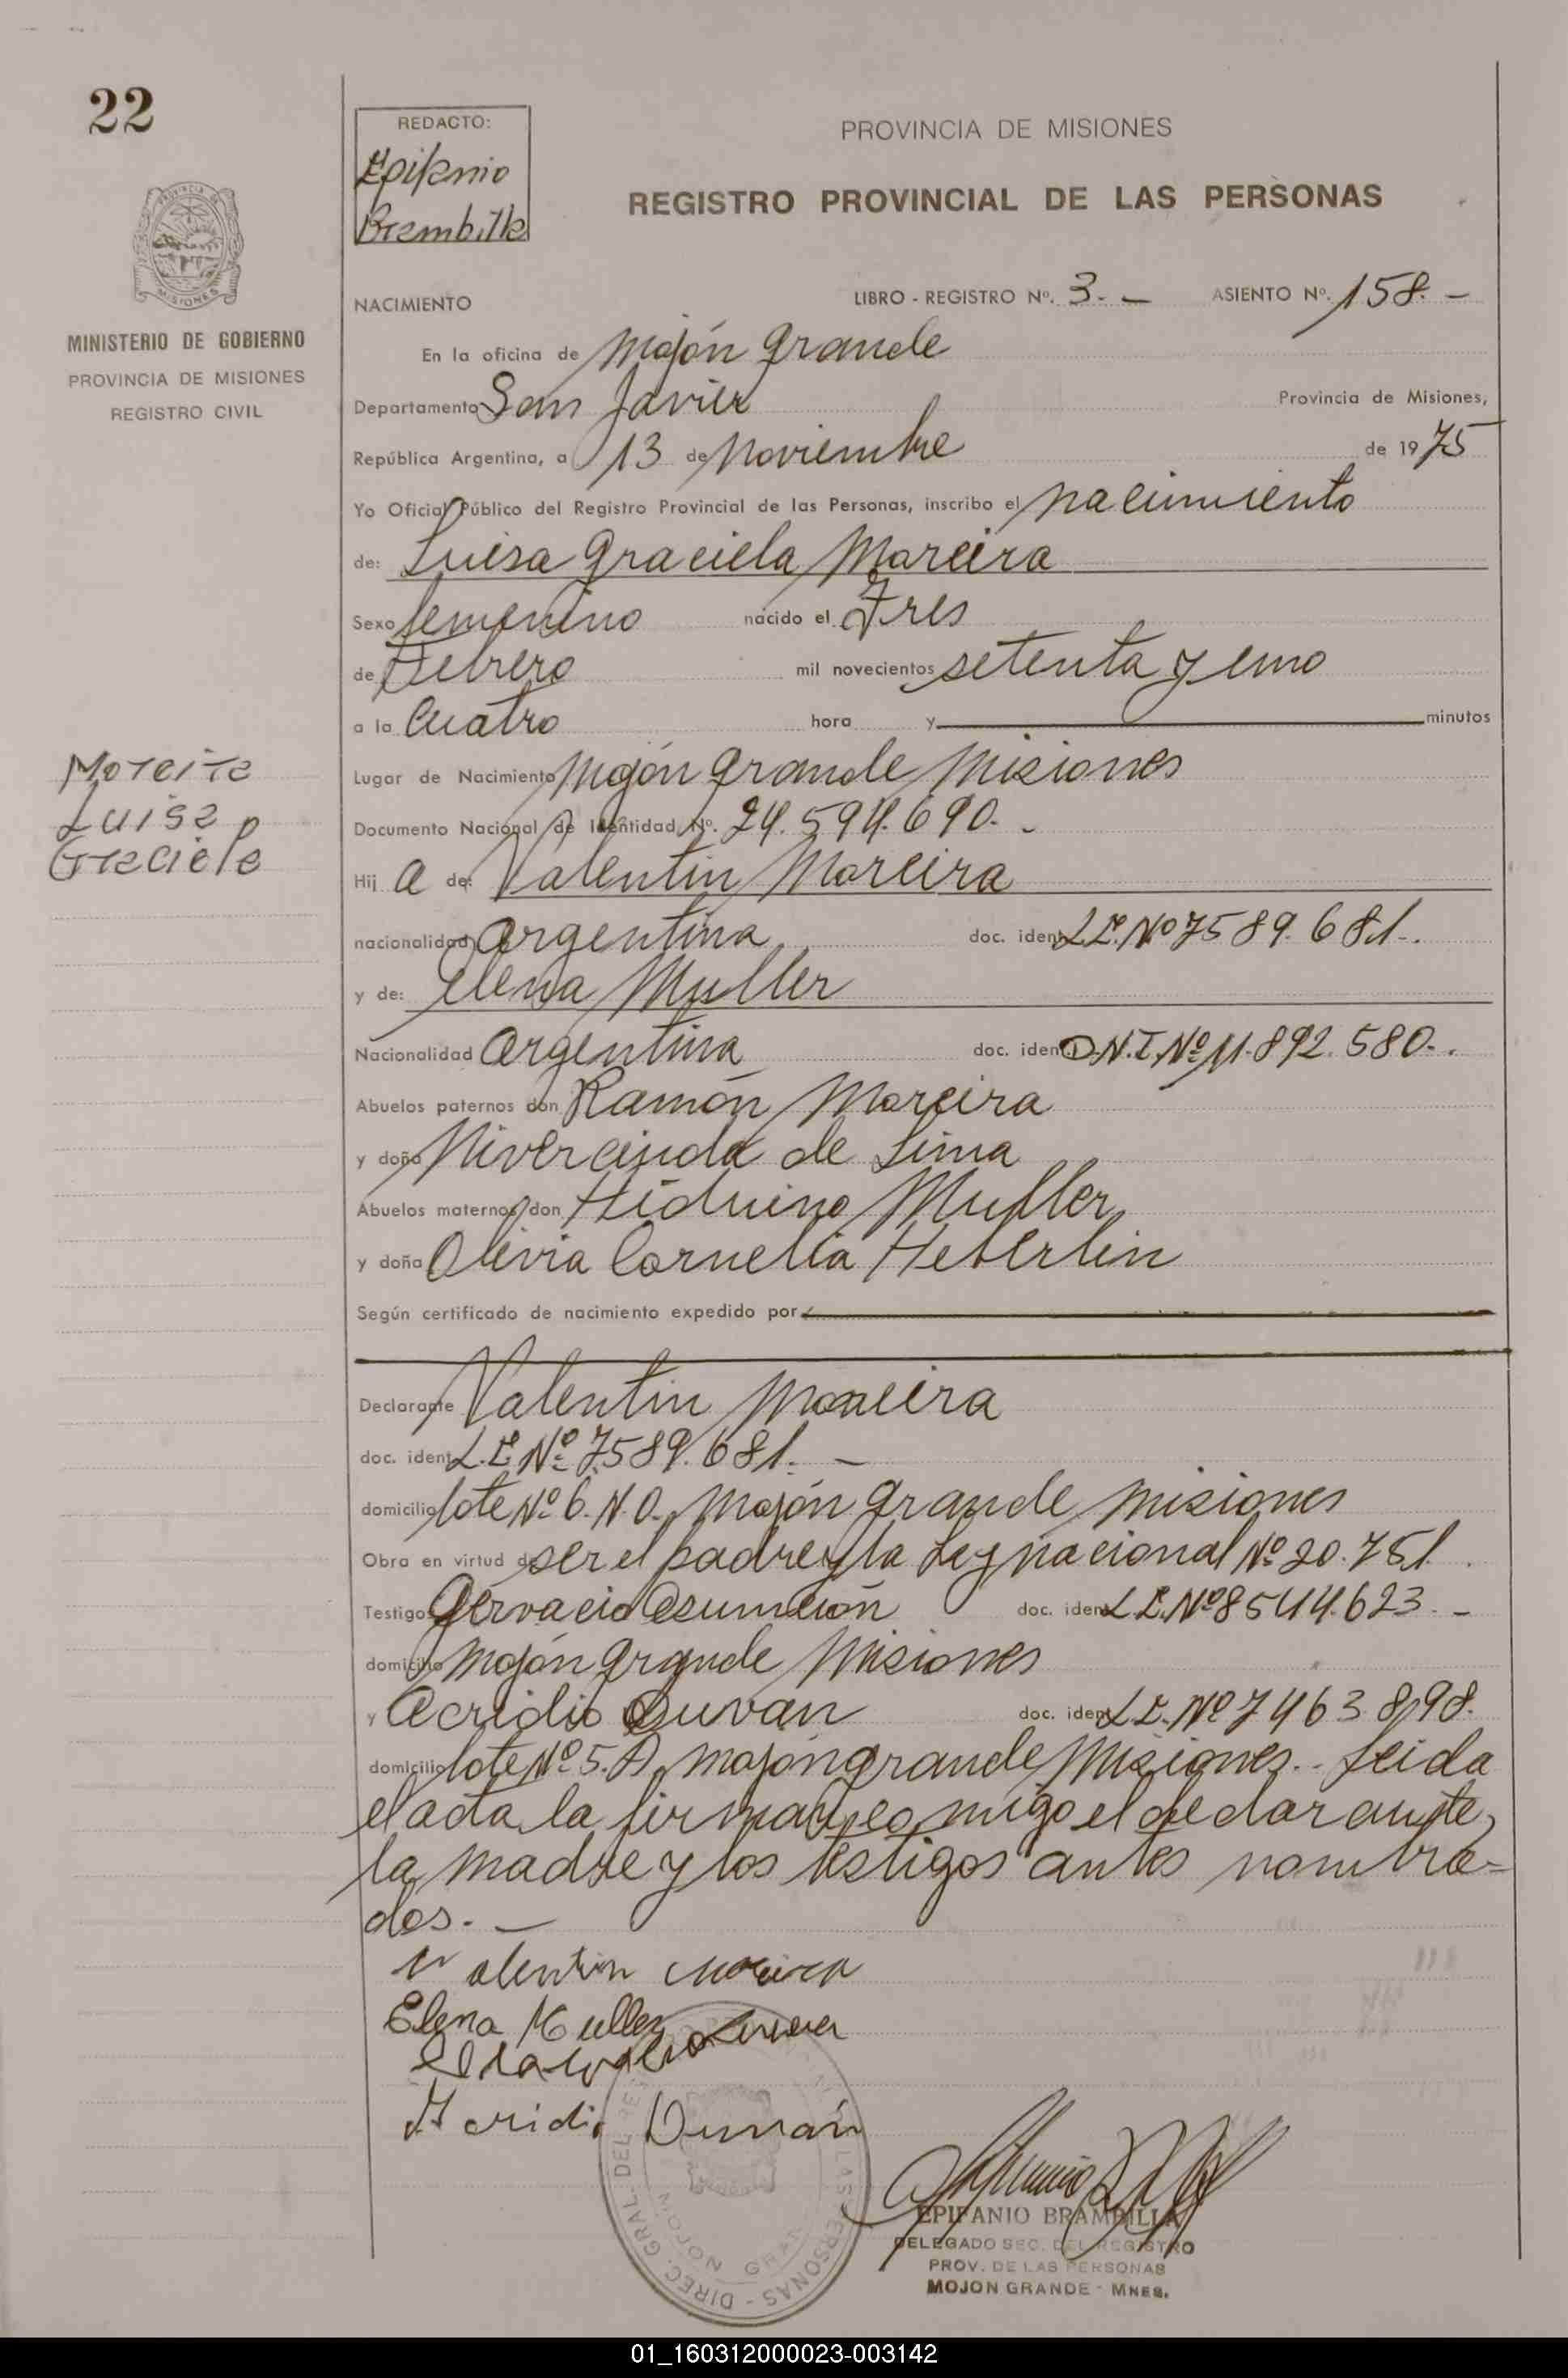 22
REDACTO:
Epifanio
Brambilla
PROVINCIA DE MISIONES
REGISTRO PROVINCIAL DE LAS PERSONAS
MISIONES
MINISTERIO DE GOBIERNO
PROVINCIA DE MISIONES
REGISTRO CIVIL
NACIMIENTO LIBRO - REGISTRO Nº. 3.- ASIENTO Nº. 158.-
En la oficina de Mojón Grande
Departamento San Javier Provincia de Misiones,
República Argentina, a 13 de Noviembre de 1975
Yo Oficial Público del Registro Provincial de las Personas, inscribo el nacimiento
de: Luisa Graciela Moreira
Sexo femenino nacido el Tres
de Febrero mil novecientos setenta y uno
a la Cuatro hora y minutos
Moreira
Luisa
Graciela
Lugar de Nacimiento Mojón Grande Misiones
Documento Nacional de Identidad Nº. 24.594.690.-
Hij a de: Valentin Moreira
nacionalidad Argentina doc. ident. L.E. Nº 7589.681.
y de: Elena Muller
Nacionalidad Argentina doc. ident. D.N.I. Nº 11.892.580.
Abuelos paternos don Ramón Moreira
y doña de Lima
Abuelos maternos don Muller
y doña Olivia Cornelia Heberlein
Según certificado de nacimiento expedido por
Declarante Valentin Moreira
doc. ident. L.E. Nº 7.589.681.-
domicilio lote Nº 6. N.O. Mojón Grande Misiones
Obra en virtud de ser el padre y la Ley nacional Nº 20.751.
Testigo: Gervacio Asunción doc. ident. L.E. Nº 8544.623.-
domicilio Mojón Grande Misiones
y Acridio Duvan doc. ident. L.E. Nº 7463.898.
domicilio lote Nº 5. A. Mojón Grande Misiones.- Leida
el acta, la firman comigo el declarante,
la madre y los testigos antes nombra-
dos.-
Valentin Moreira
Elena Muller
Acridio Duván
DIREC. GRAL. DEL REG. LAS PERSONAS
MOJON GRANDE
EPIFANIO BRAMBILLA
DELEGADO SEC. DEL REGISTRO
PROV. DE LAS PERSONAS
MOJON GRANDE - MNES.
01_160312000023-003142